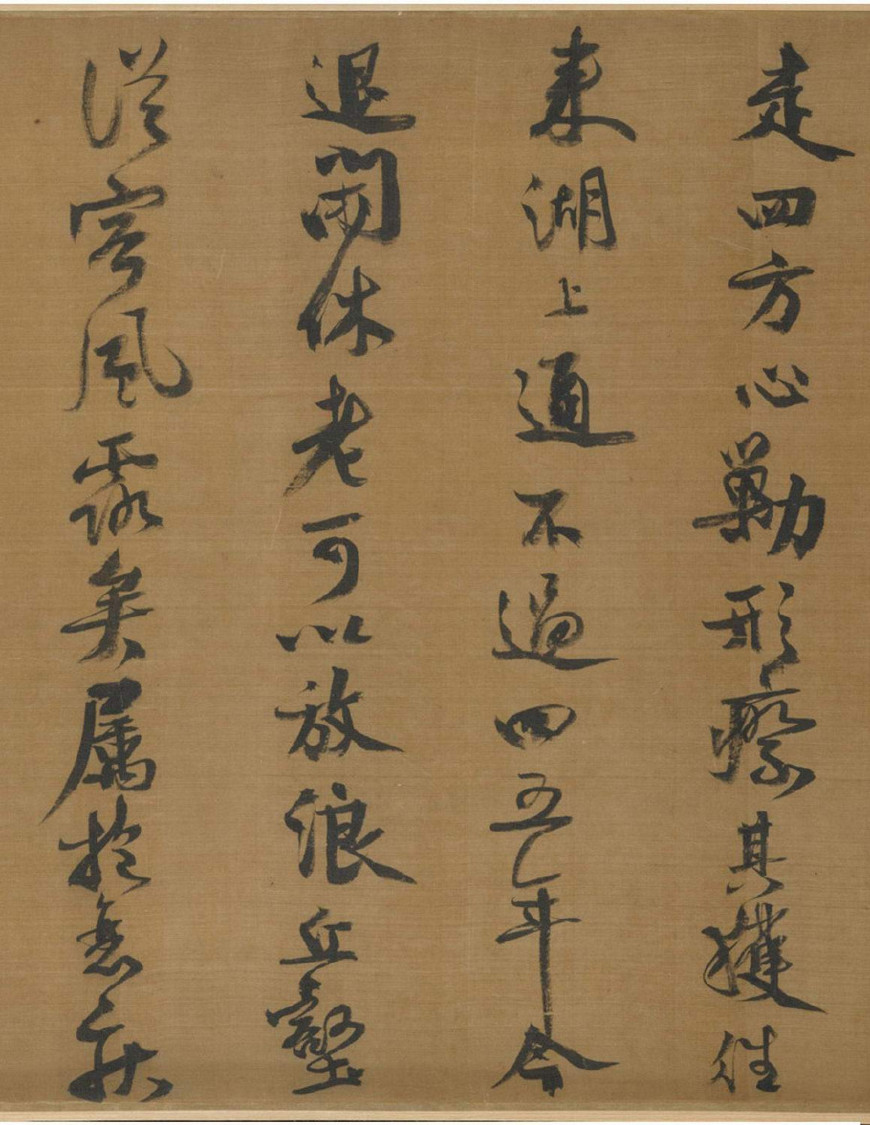 走四方心勤形瘵其獲往
來湖上通不過四五年今
退閒休老可以放浪丘壑
從容風露矣屬於